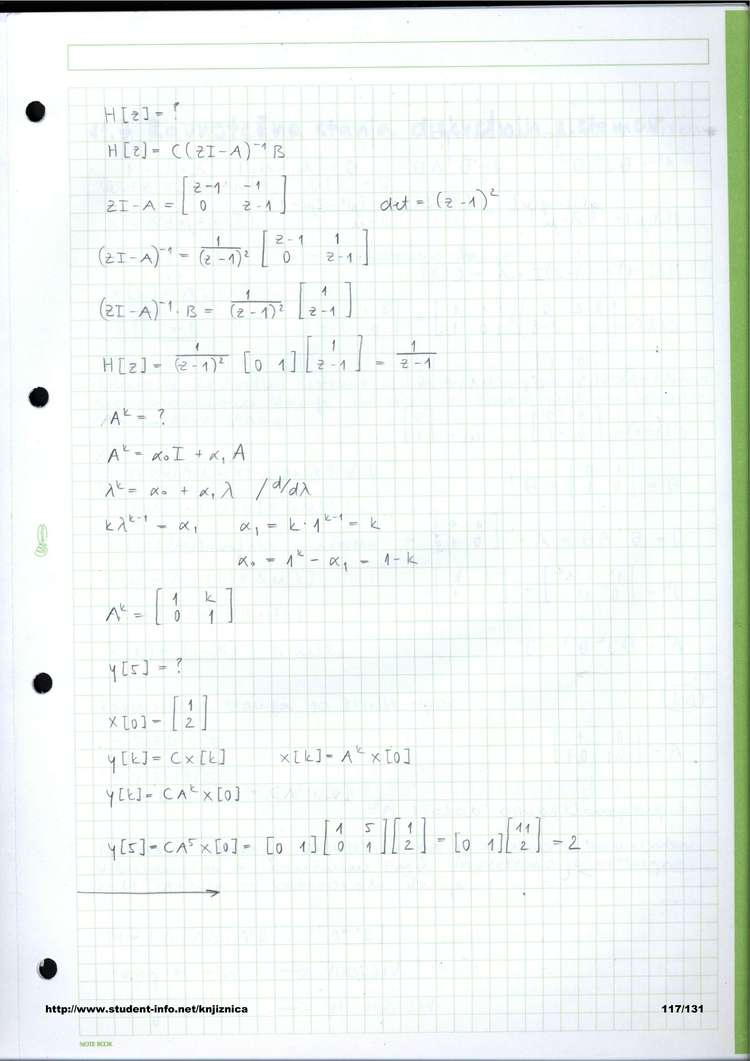 H[z] = ?
H[z] = C(zI-A)⁻¹B
zI-A = [z-1 -1; 0 z-1] det = (z-1)²
(zI-A)⁻¹ = 1/(z-1)² [z-1 1; 0 z-1]
(zI-A)⁻¹·B = 1/(z-1)² [1; z-1]
H[z] = 1/(z-1)² [0 1][1; z-1] = 1/(z-1)
Aᵏ = ?
Aᵏ = α₀I + α₁A
λᵏ = α₀ + α₁λ /d/dλ
kλᵏ⁻¹ = α₁ α₁ = k·1ᵏ⁻¹ = k
α₀ = 1ᵏ - α₁ = 1-k
Aᵏ = [1 k; 0 1]
y[5] = ?
x[0] = [1; 2]
y[k] = Cx[k] x[k] = Aᵏx[0]
y[k] = CAᵏx[0]
y[5] = CA⁵x[0] = [0 1][1 5; 0 1][1; 2] = [0 1][11; 2] = 2
http://www.student-info.net/knjiznica 117/131
NOTE BOOK